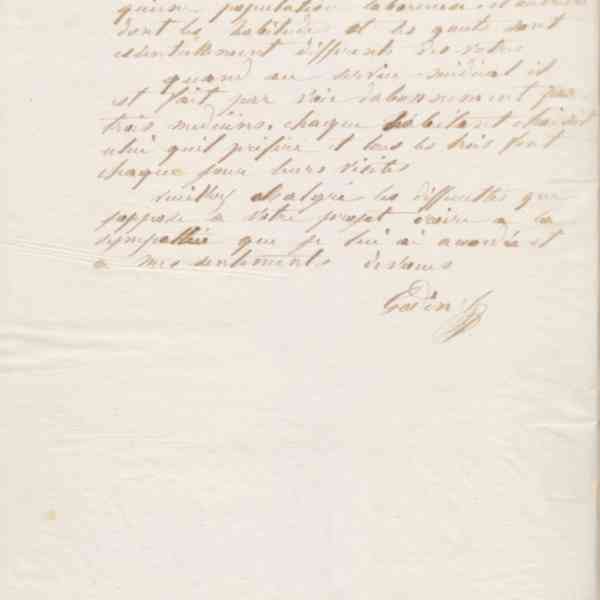 qu'une population laborieuse et ouvrière
dont les habitudes et les gouts sont
essentiellement différents des votres
quand au service médical il
est fait par voie d'abonnement par
trois medecins. chaque habitant choisit
celui qu'il préfère et tous les trois font
chaque jour leurs visites
veuillez Malgré les difficultés que
j'oppose à votre projet croire a la
sympathie que je lui ai accordée et
a mes sentiments dévoués
Godin